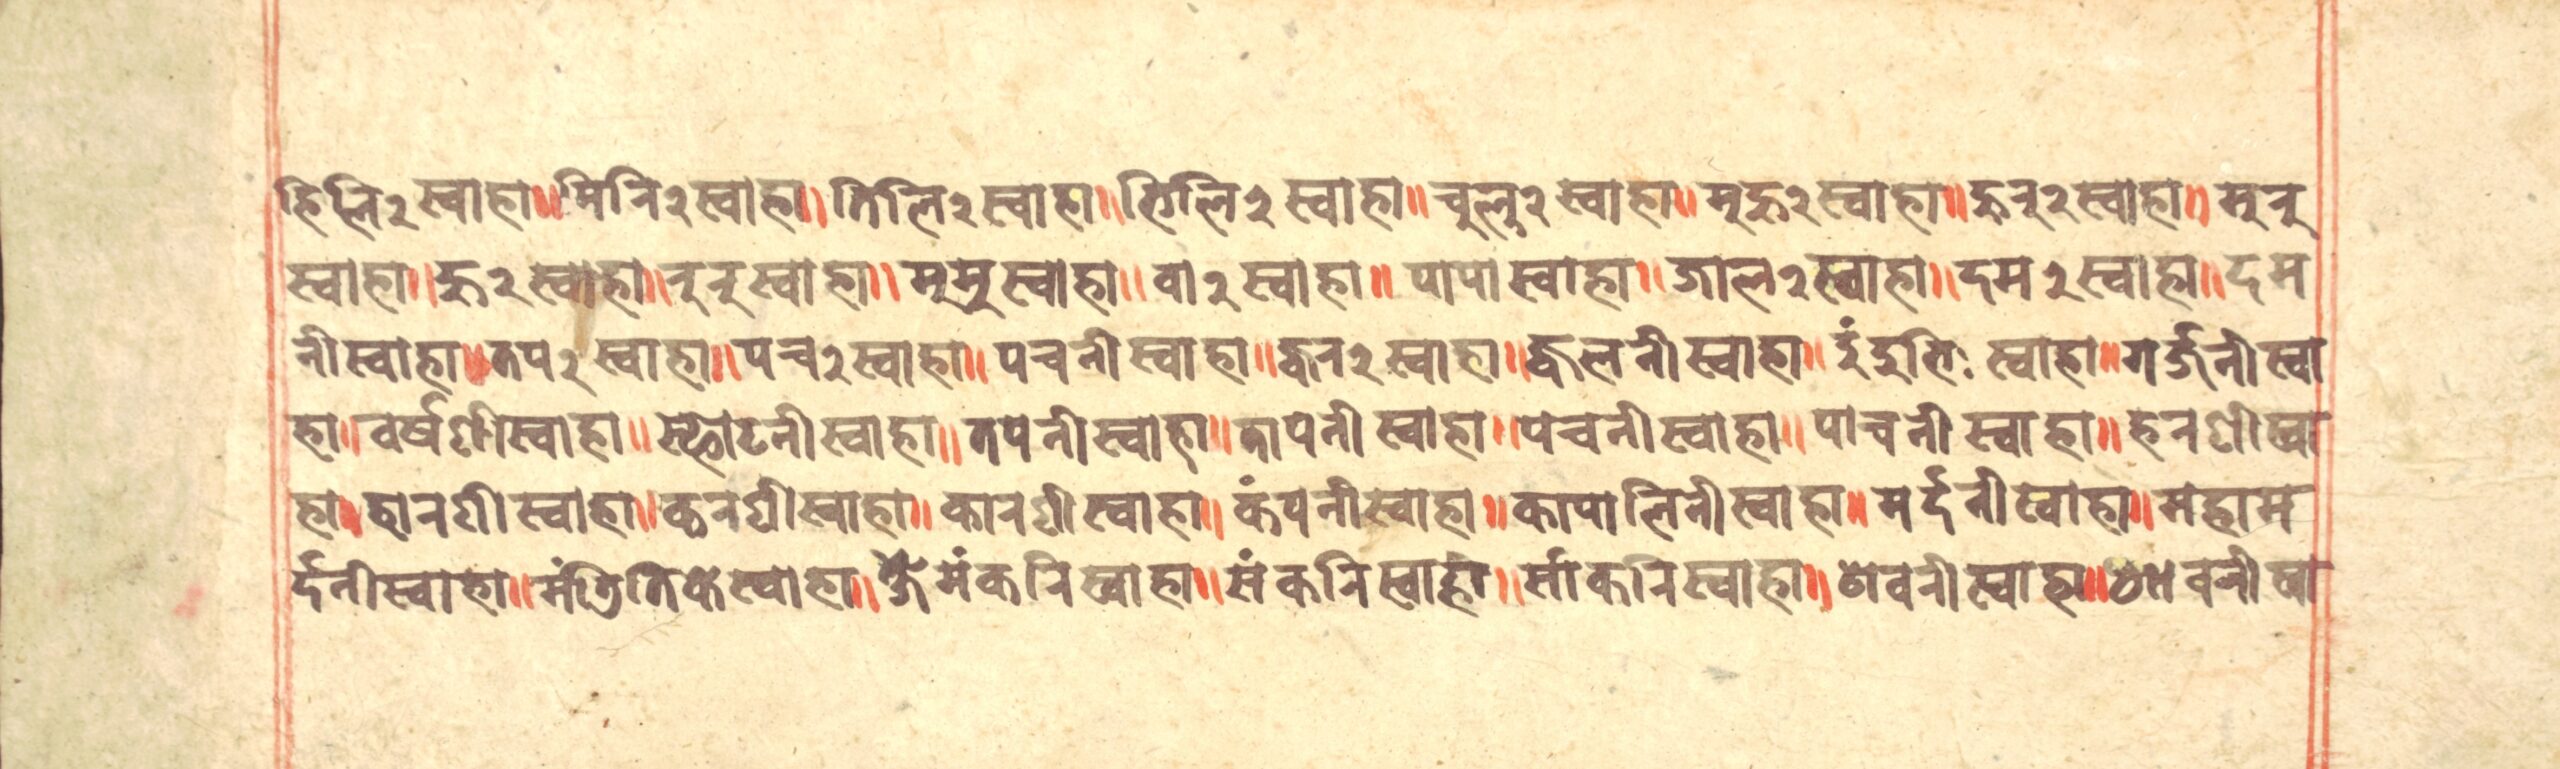 हिलि२स्वाहा॥मिनि२स्वाहा॥तिलि२स्वाहा॥हिलि२स्वाहा॥चुलु२स्वाहा॥मुहु२स्वाहा॥हुनु२स्वाहा॥मुनु
स्वाहा॥हु२स्वाहा॥नुनुस्वाहा॥मुमुस्वाहा॥वा२स्वाहा॥पापास्वाहा॥जाल२स्वाहा॥दम२स्वाहा॥दम
नीस्वाहा॥तप२स्वाहा॥पच२स्वाहा॥पचनीस्वाहा॥ज्वन२स्वाहा॥ज्वलनीस्वाहा॥दुंदुभिःस्वाहा॥गर्ज्जनीस्वा
हा॥वर्षणीस्वाहा॥स्फोटनीस्वाहा॥तपनीस्वाहा॥तापनीस्वाहा॥पचनीस्वाहा॥पाचनीस्वाहा॥हनणीस्वा
हा॥हानणीस्वाहा॥कनणीस्वाहा॥कानणीस्वाहा॥कंपनीस्वाहा॥कापालिनीस्वाहा॥मर्दनीस्वाहा॥महाम
र्दनीस्वाहा॥मंत्रितिकेस्वाहा॥क्षेमंकनिस्वाहा॥संकनिस्वाहा॥सांकनिस्वाहा॥ वनीस्वाहा॥ वनीस्वा